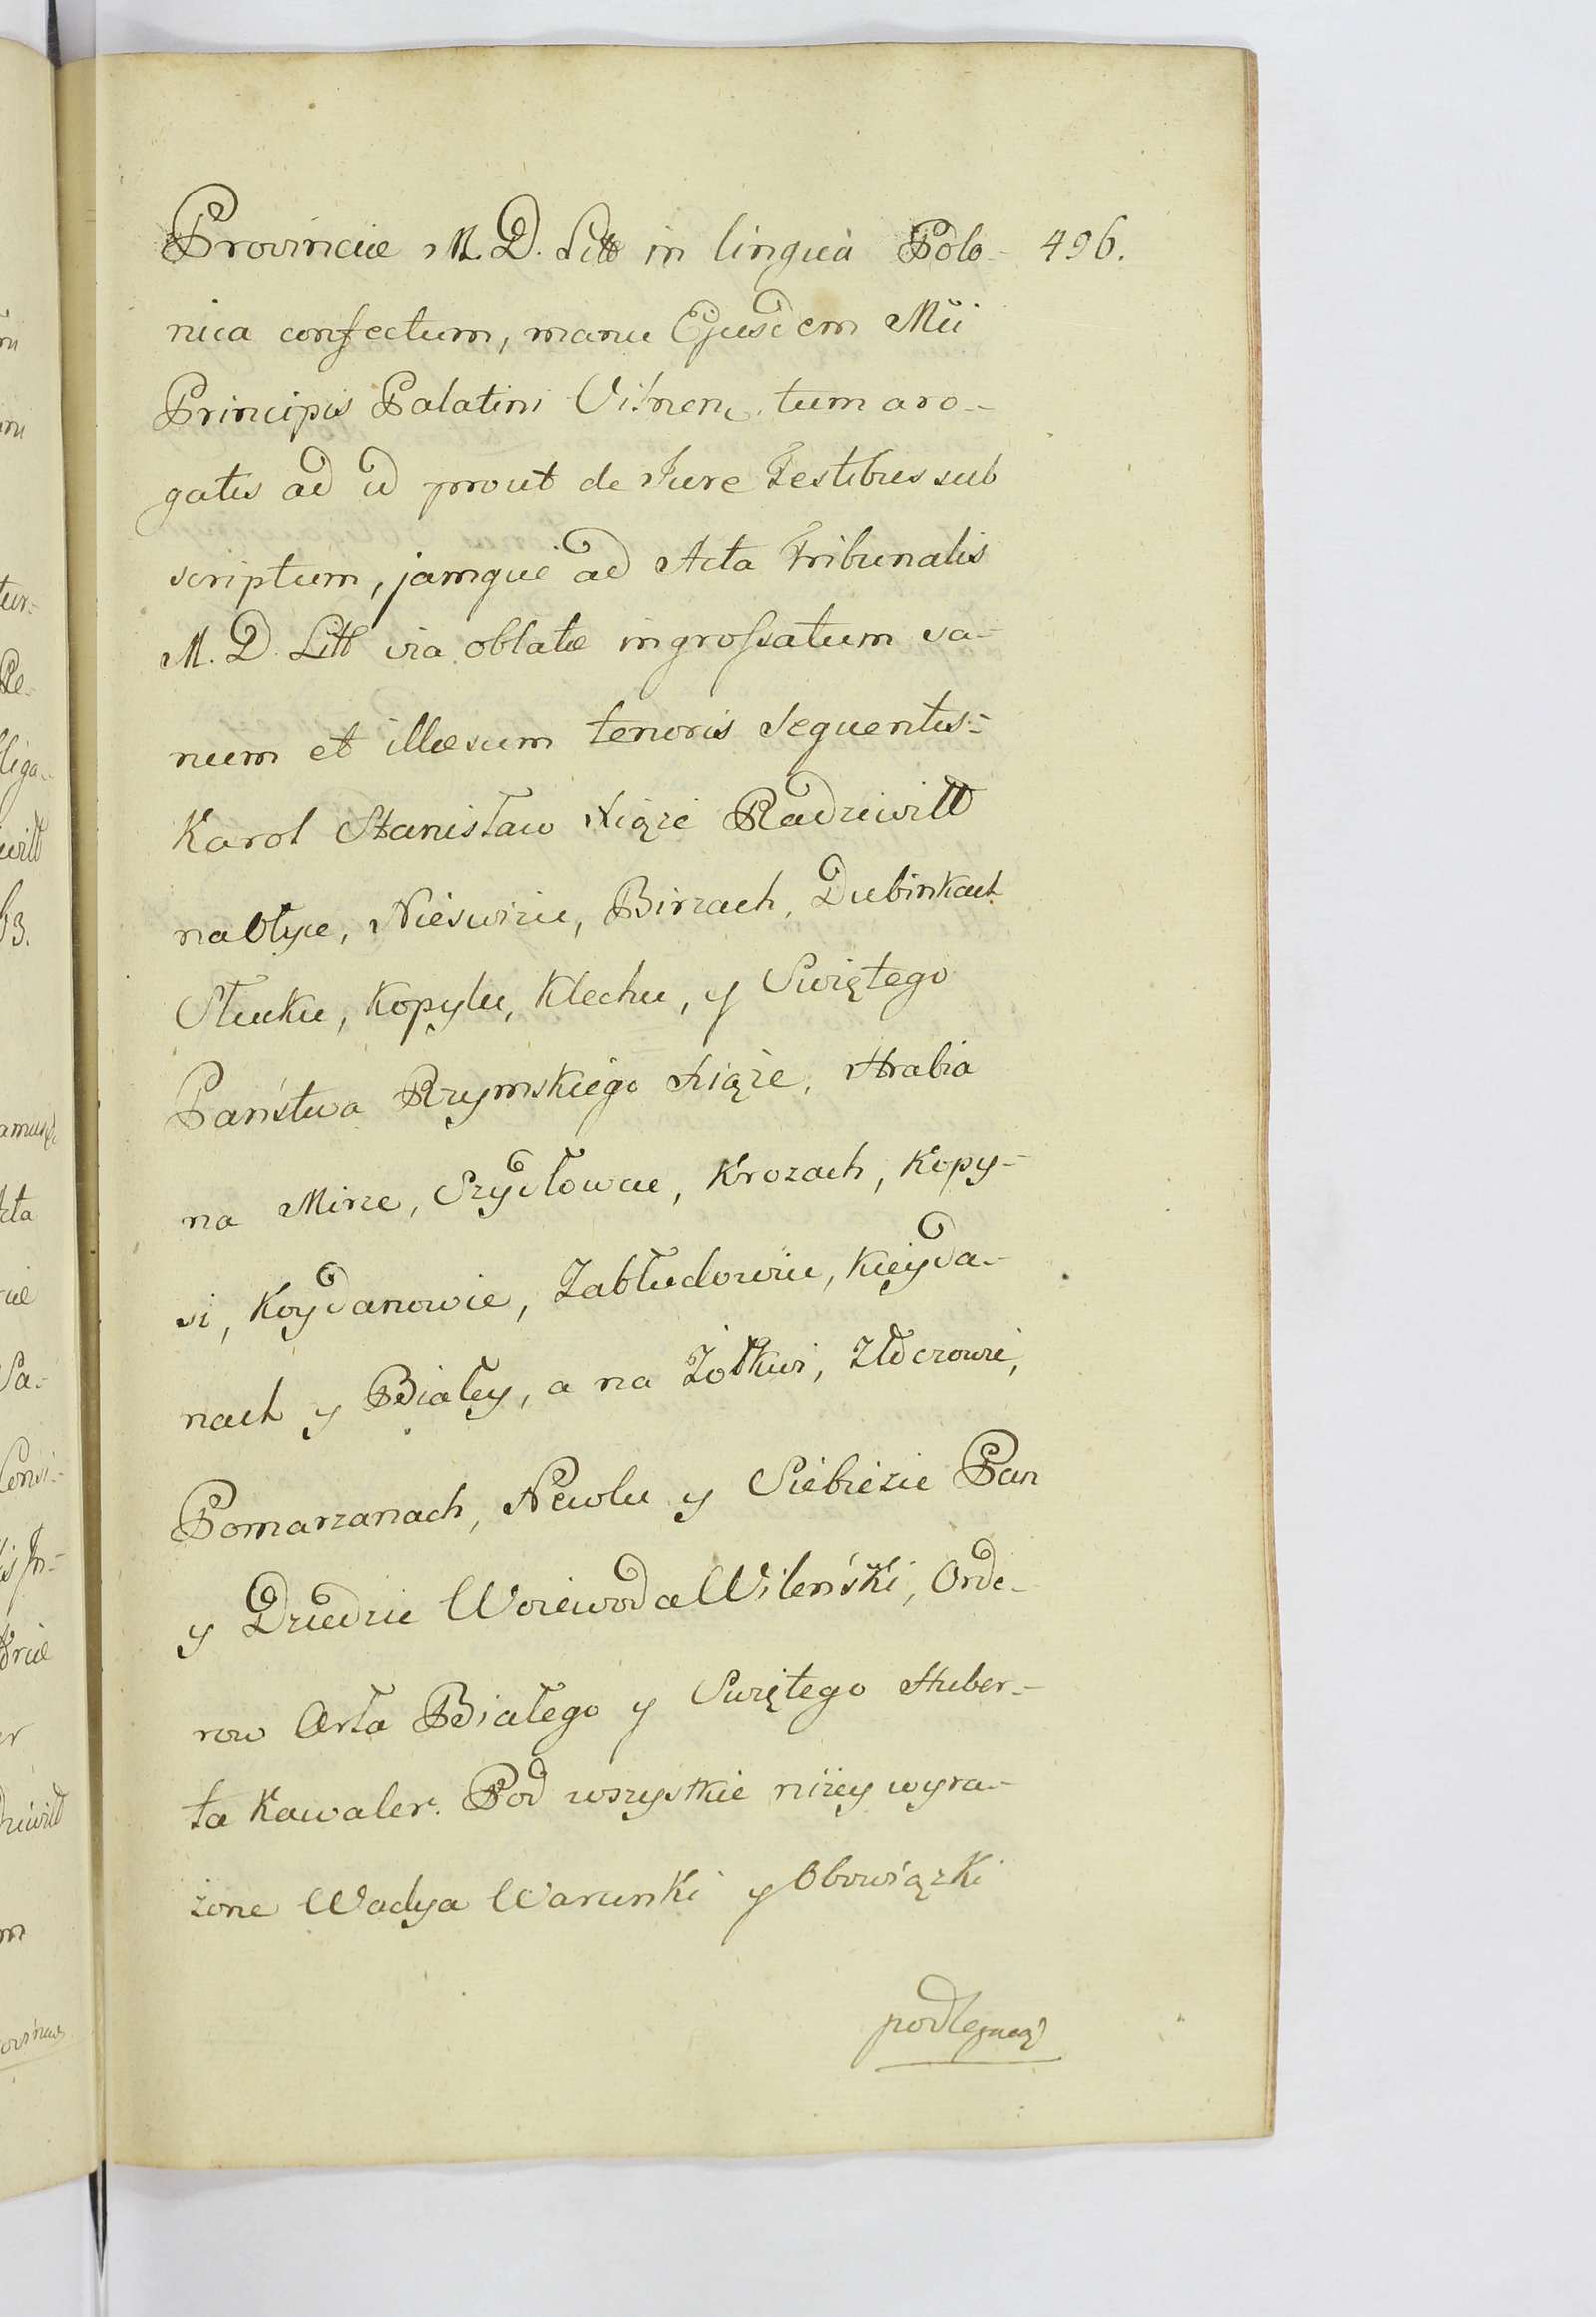 Provinciæ M. D. Litt in linguâ Polo- 496.
nica confectum, manu Ejusdem Mũi
Principis Palatini Vilnen. tum a ro-
gatis ad id prout de Jure Testibus sub
scriptum, jamque ad Acta Tribunalis
M. D. Litt via oblatæ ingrossatum sa-
num et illæsum tenoris sequentis:-
Karol Stanisław Xiąże Radziwiłł
na Ołyce, Nieswiżu, Birżach, Dubinkach
Słucku, Kopylu, Klecku, y Swiętego
Państwa Rzymskiego Xiąże, Hrabia
na Mirze, Szydłowcu, Krożach, Kopy-
si, Koydanowie, Zabłudowiu, Kieyda-
nach y Białey, a na Żołkwi, Złoczowie,
Pomarzanach, Newlu y Siebieżu Pan
y Dziedzic Woiewoda Wileński, Orde-
row Orła Białego y Swiętego Huber-
ta Kawaler. Pod wszystkie niżey wyra-
żone Wadya Warunki y Obowiązki
podlegaiąc